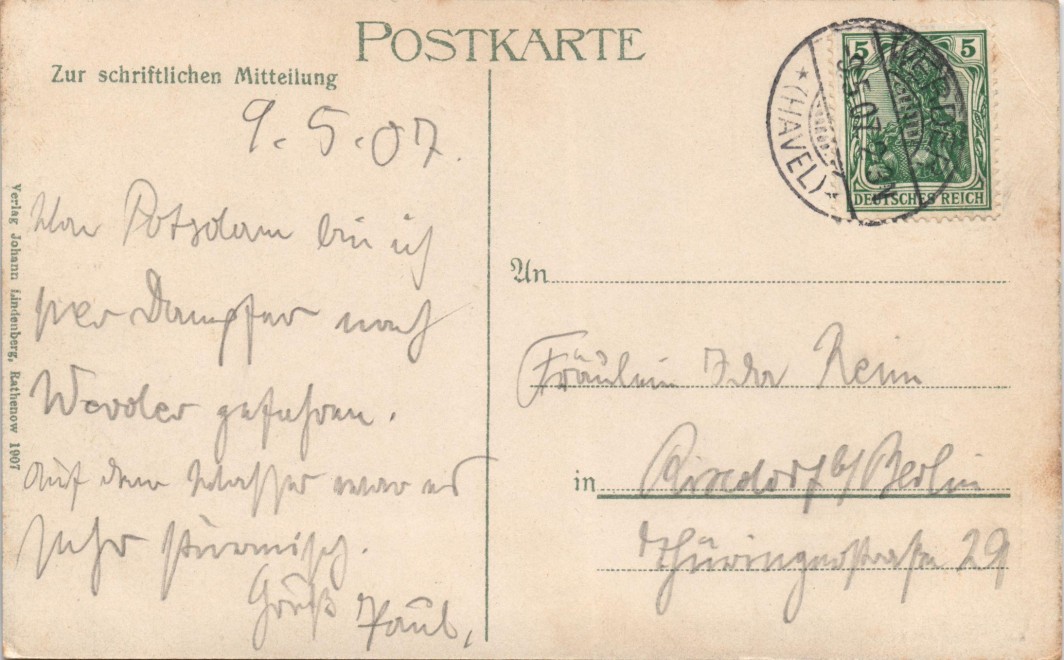 POSTKARTE
Zur schriftlichen Mitteilung
9.5.07.
Von Potsdam bin ich
per Dampfer nach
Werder gefahren.
Auf dem Wasser war es
sehr stürmisch.
Gruß Paul.
Verlag Johann Lindenberg, Rathenow 1907
5 5
DEUTSCHES REICH
WERDER
9.5.07. 2-3N
*(HAVEL)*
An
Fräulein Ida Reim
in Rixdorf b/Berlin
Thüringerstraße 29